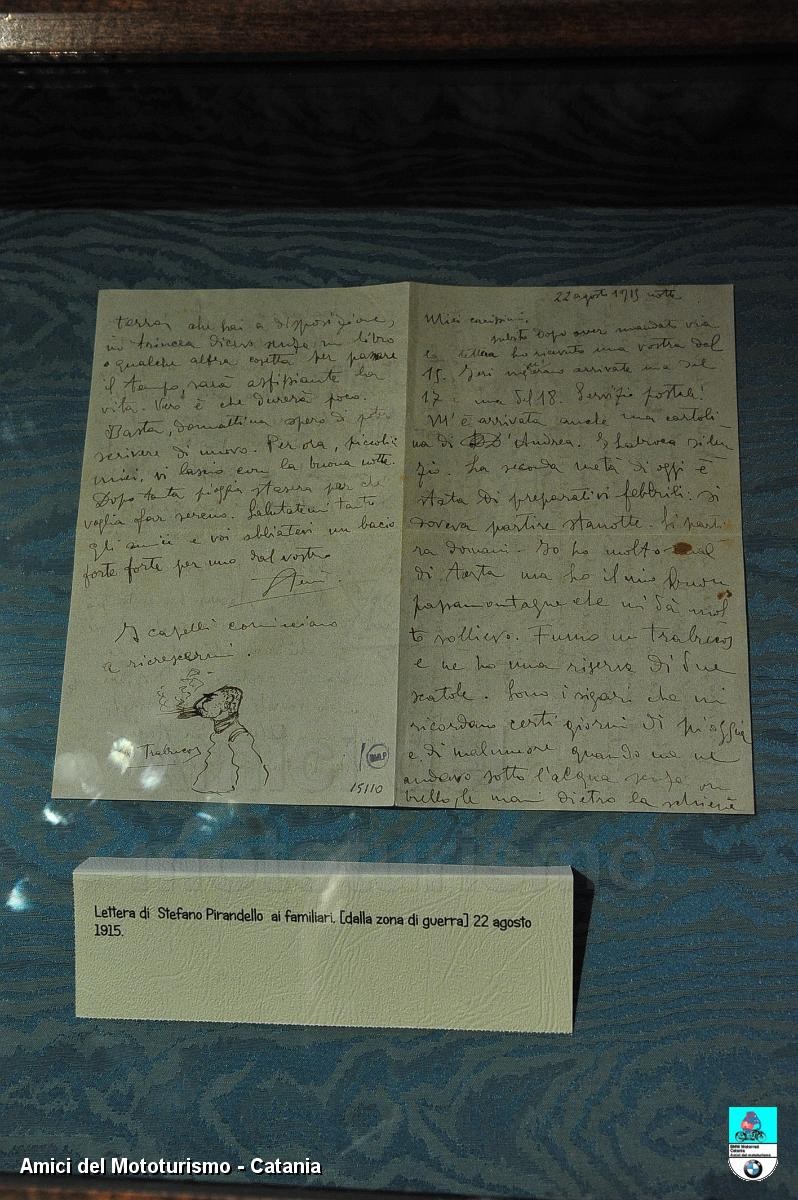 22 agosto 1915 notte
Miei carissimi,
subito dopo aver mandato via
la lettera ho ricevuto una vostra del
15. Ieri mi erano arrivate una del
17 e una del 18. Servizio postale!
M'è arrivata anche una cartoli-
na di D'Andrea. E Labroca silen-
zio. La seconda metà di oggi è
stata di preparativi febbrili: si
doveva partire stanotte. Si parti-
rà domani. Io ho molto mal
di testa ma ho il mio buon
passamontagne che mi dà mol-
to sollievo. Fumo un Trabucos
e ne ho una riserva di due
scatole. Sono i sigari che mi
ricordano certi giorni di pioggia
e di malumore quando me ne
andavo sotto l'acqua senza om-
brello, le mani dietro la schiena
terra che hai a disposizione,
in trincea dicevo senza un libro
o qualche altra cosetta per passare
il tempo, sarà asfissiante la
vita. Vero è che durerà poco.
Basta, domattina spero di poter
scrivere di nuovo. Per ora, piccoli
miei, vi lascio con la buona notte.
Dopo tanta pioggia stasera par che
voglia far sereno. Salutatemi tanto
gli amici e voi abbiatevi un bacio
forte forte per uno dal vostro
I capelli cominciano
a ricrescermi.
Trabucos
15110
Lettera di Stefano Pirandello ai familiari, [dalla zona di guerra] 22 agosto
1915.
mototurismo
Amici del Mototurismo - Catania
BMW Motorrad
Catania
Amici del mototurismo